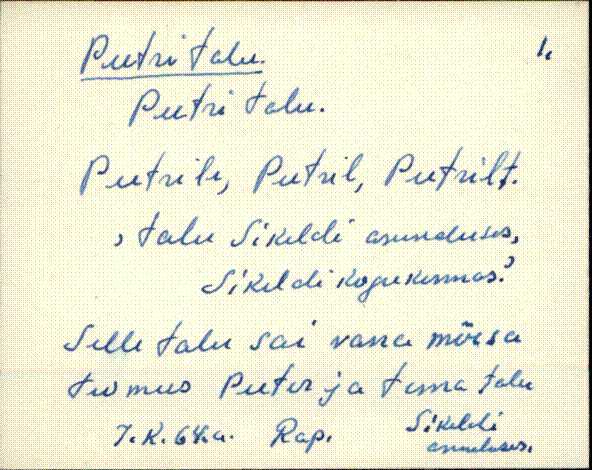 Peetri talu. 1.
Peetri talu.
Peetrile, Peetril, Peetrilt.
, talu Sikeldi asunduses,
Sikeldi kogukonnas.'
Selle talu sai vana mõisa
teomees Peeter ja tema talu
J.K. 64.a. Rap. Sikeldi
asunduses.